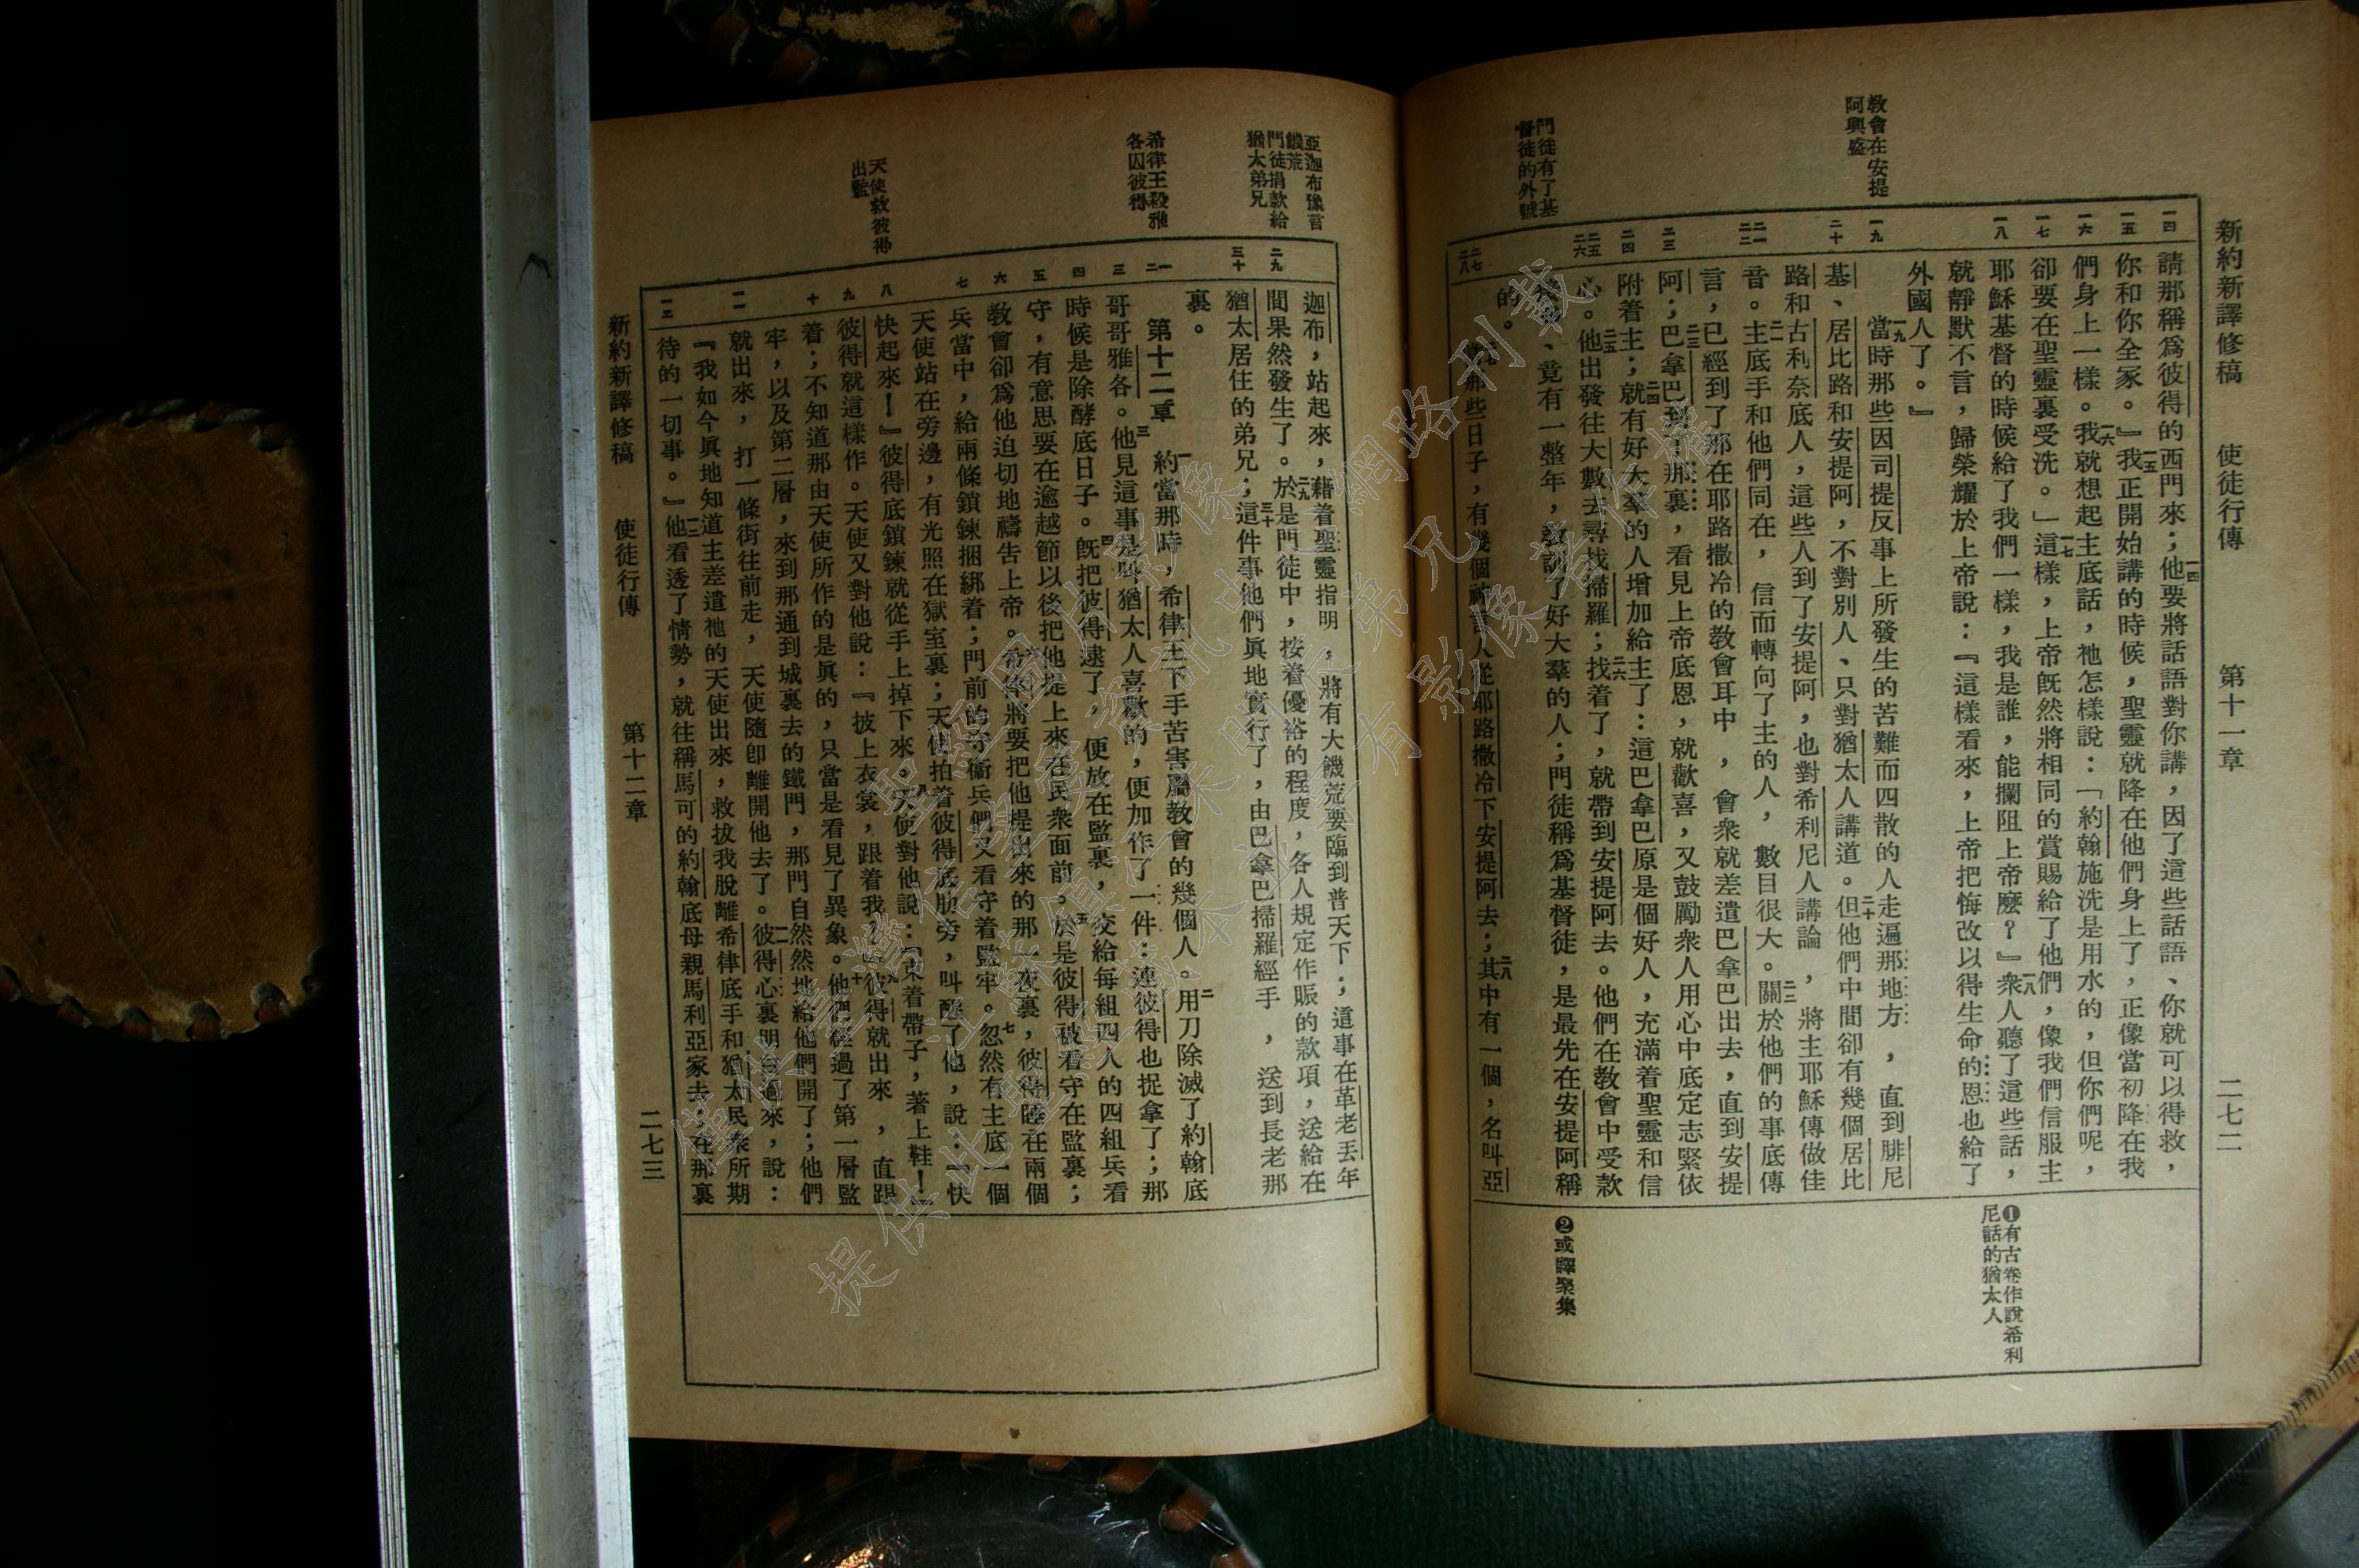 新約新譯修稿　使徒行傳　第十一章　二七二
教會在安提
阿興盛
門徒有了基
督徒的外號
一四
一五
一六
一七
一八
一九
二十
二一
二二
二三
二四
二五
二六
二七
二八
請那稱爲彼得的西門來；一四他要將話語對你講，因了這些話語、你就可以得救，
你和你全家。』一五我正開始講的時候，聖靈就降在他們身上了，正像當初降在我
們身上一樣。一六我就想起主底話，祂怎樣說：「約翰施洗是用水的，但你們呢，
卻要在聖靈裏受洗。」一七這樣，上帝旣然將相同的賞賜給了他們，像我們信服主
耶穌基督的時候給了我們一樣，我是誰，能攔阻上帝麽？』一八衆人聽了這些話，
就靜默不言，歸榮耀於上帝說：『這樣看來，上帝把悔改以得生命的恩也給了
外國人了。』
一九當時那些因司提反事上所發生的苦難而四散的人走遍那地方，直到腓尼
基、居比路和安提阿，不對別人、只對猶太人講道。二十但他們中間卻有幾個居比
路和古利奈底人，這些人到了安提阿，也對希利尼人講論，將主耶穌傳做佳
音。二一主底手和他們同在，信而轉向了主的人，數目很大。二二關於他們的事底傳
言，已經到了那在耶路撒冷的教會耳中，會衆就差遣巴拿巴出去，直到安提
阿；二三巴拿巴到了那裏，看見上帝底恩，就歡喜，又鼓勵衆人用心中底定志緊依
附着主；二四就有好大羣的人增加給主了：這巴拿巴原是個好人，充滿着聖靈和信
心。二五他出發往大數去尋找掃羅；二六找着了，就帶到安提阿去。他們在教會中受款
、竟有一整年，教訓了好大羣的人；門徒稱爲基督徒，是最先在安提阿稱
的。
那些日子，有幾個神言人從耶路撒冷下安提阿去；二八其中有一個，名叫亞
❶有古卷作說希利
尼話的猶太人
❷或譯聚集
亞迦布豫言
饑荒
門徒捐款給
猶太弟兄
希律王殺雅
各囚彼得
天使救彼得
出監
二九
三十
一
二
三
四
五
六
七
八
九
十
一一
一二
迦布，站起來，藉着聖靈指明，將有大饑荒要臨到普天下；這事在革老丟年
間果然發生了。二九於是門徒中，按着優裕的程度，各人規定作賑的款項，送給在
猶太居住的弟兄；三十這件事他們眞地實行了，由巴拿巴掃羅經手，送到長老那
裏。
第十二章　一約當那時，希律王下手苦害屬教會的幾個人。二用刀除滅了約翰底
哥哥雅各。三他見這事是叫猶太人喜歡的，便加作了一件：連彼得也捉拿了；那
時候是除酵底日子。四旣把彼得逮了，便放在監裏，交給每組四人的四組兵看
守，有意思要在逾越節以後把他提上來在民衆面前。五於是彼得被看守在監裏；
教會卻爲他迫切地禱吿上帝。六希律將要把他提出來的那一夜裏，彼得睡在兩個
兵當中，給兩條鎖鍊捆綁着；門前的守衞兵們又看守着監牢。七忽然有主底一個
天使站在旁邊，有光照在獄室裏；天使拍着彼得底肋旁，叫醒了他，說：『快
快起來！』彼得底鎖鍊就從手上掉下來。八天使對他說：『束着帶子，著上鞋！』
彼得就這樣作。天使又對他說：『披上衣裳，跟着我。』九彼得就出來，直跟
着；不知道那由天使所作的是眞的，只當是看見了異象。十他們經過了第一層監
牢，以及第二層，來到那通到城裏去的鐵門，那門自然然地給他們開了；他們
就出來，打一條街往前走，天使隨卽離開他去了。一一彼得心裏明白過來，說：
『我如今眞地知道主差遣祂的天使出來，救拔我脫離希律底手和猶太民衆所期
待的一切事。』一二他看透了情勢，就往稱馬可的約翰底母親馬利亞家去；在那裏
新約新譯修稿　使徒行傳　第十二章　二七三